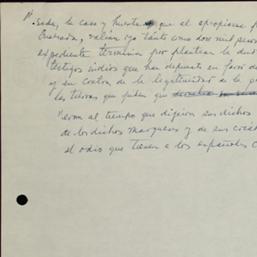 sedes, la casa y huerta que el apropiarse
Quesada, valían ya tanto como dos mil pesos
expediente termina por plantear la dud
testigos indios que han depuesto en favor de
y en contra de la legitimidad de la
las tierras que piden que
eran al tiempo que dijeron sus dichos
de los dichos marqueses y de sus criad
el odio que tienen a los españoles